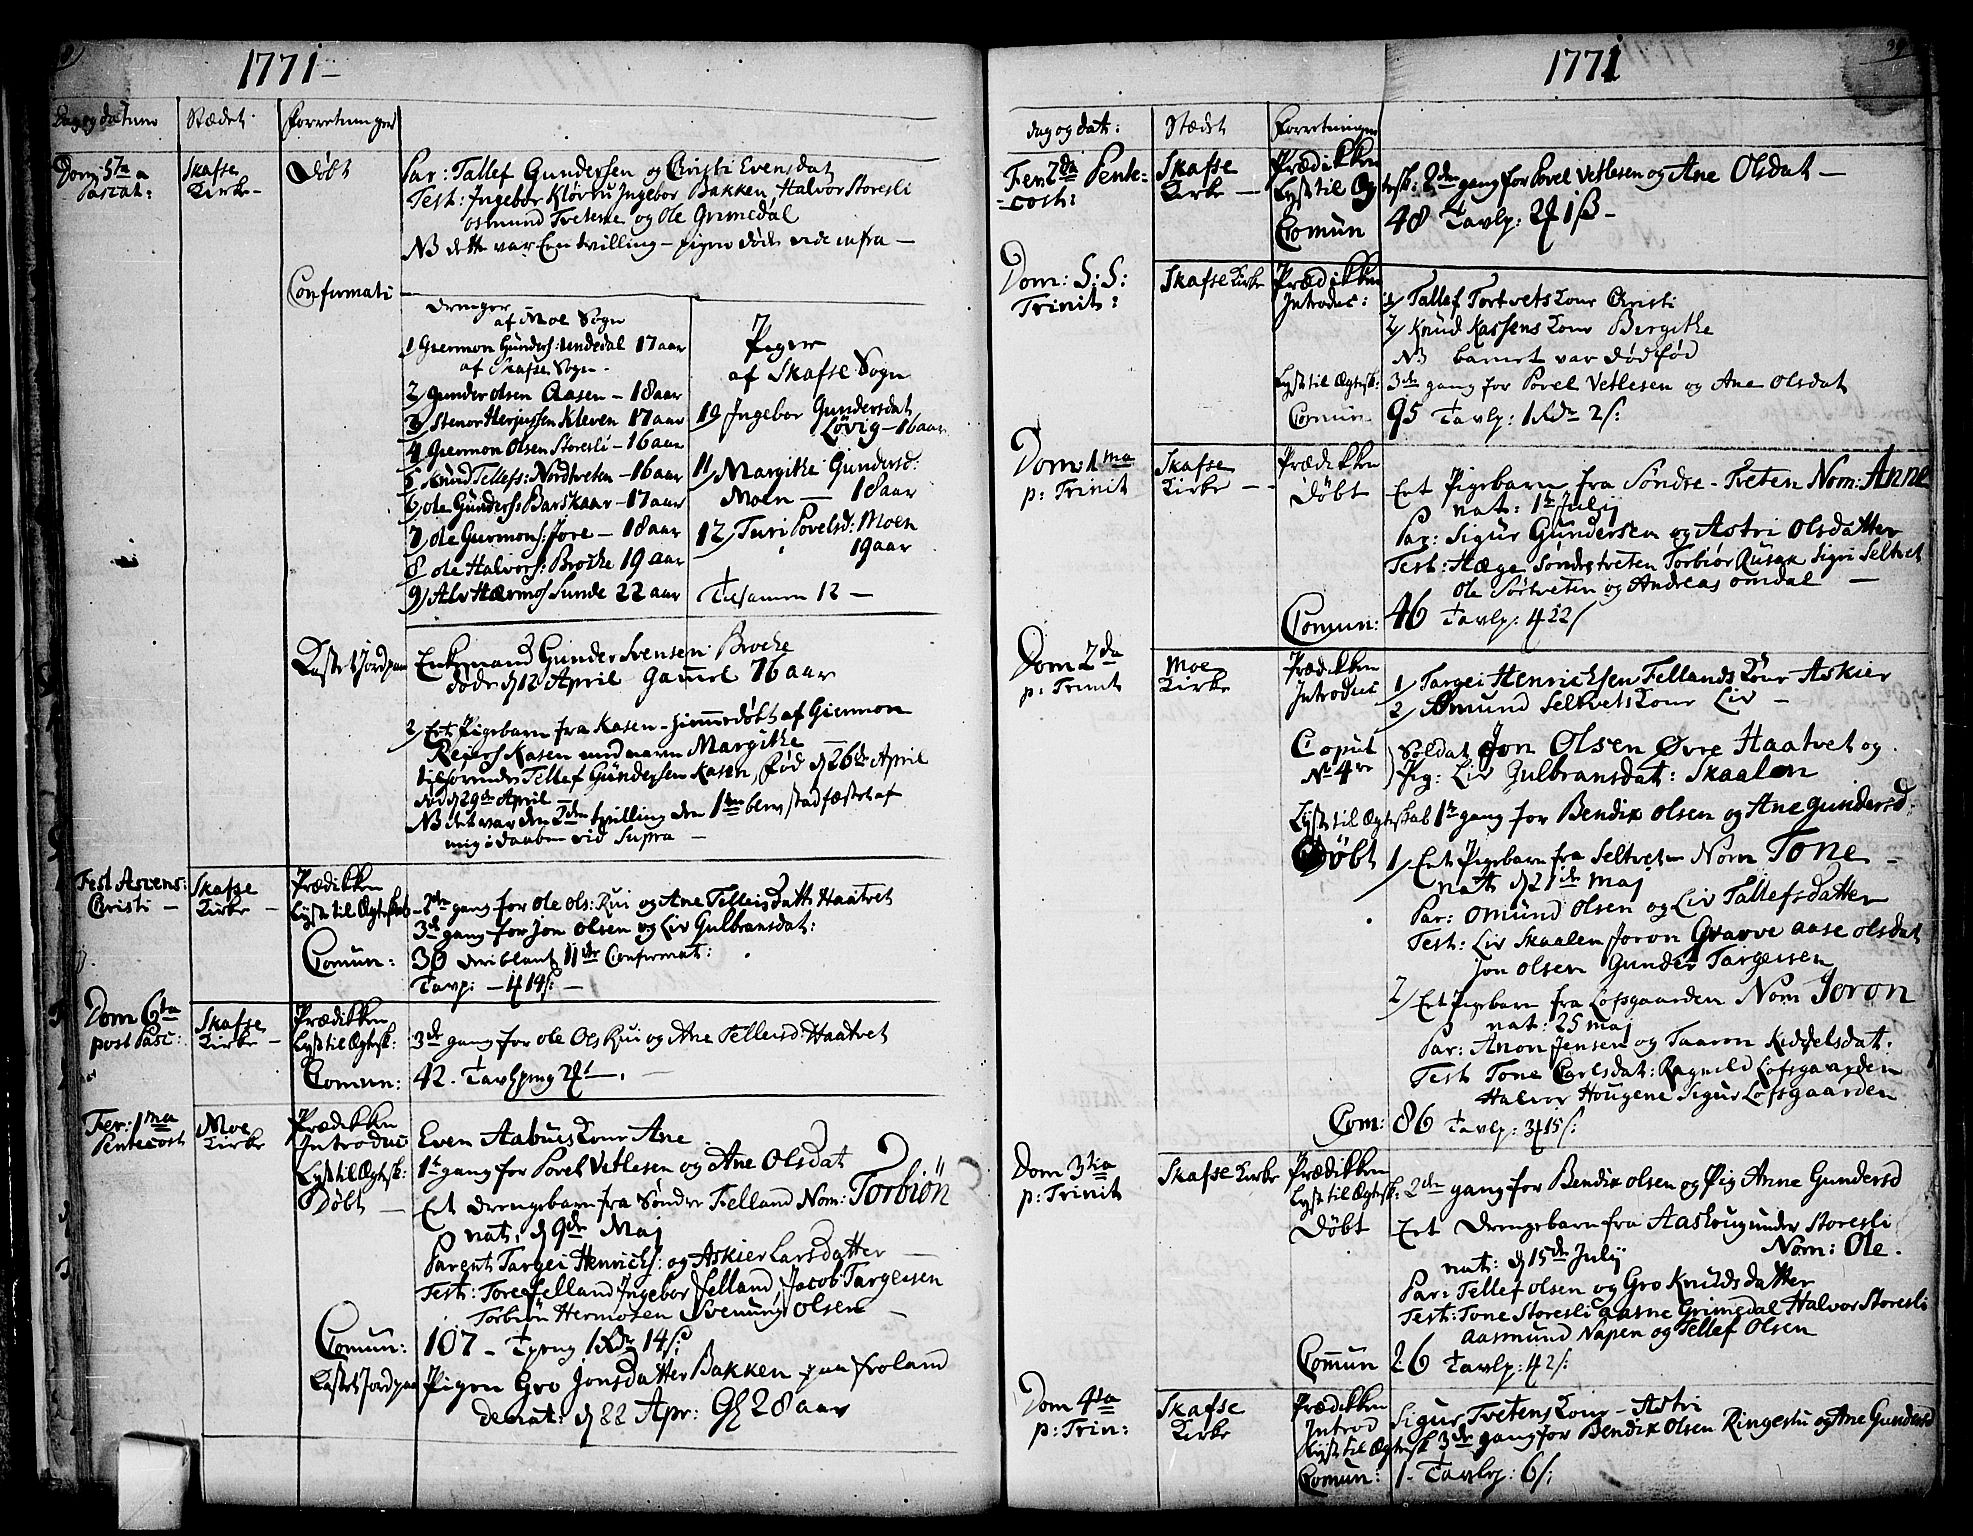 1771
Dag og datum Stædet Forretninger
Dom: 5ta a Pascat: Skafse Kirke – Döbt
Par: Tallef Gundersen og Christi Evensdat
Test: Ingebor Klövru Ingebor Bakken, Halvor Storesli
osmund Tvetene og Ole Grimedal
NB dette var Een tvilling – pigen döde vide infra –
Confirmati
Drenger
af Moe Sogn
1 Giermon Gunders: 17 aar
af Skafse Sogn –
2/ Gunder olsen Aasen – 18 aar
3/ Stenor Herjussen Kleven 17 aar
4 Giermon Olsen Storesli – 16 aar
5 Knud Tellefs: Nordtveten – 16 aar
6/ ole Gunders Barskaar – 17 aar
7/ ole Giermons: Jore – 18 aar
8 ole Halvors: Brocke 19 aar
9/ Alv Hærmos Sunde 22 aar
Piger
af Skafse Sogn
10/ Ingebor Gundersdat
Lövig – 16 aar
11/ Margithe Gundersd:
Moen – 18 aar
12/ Turi Povelsd: Moen
19 aar
Tilsamen 12 –
Kastet Jord paa Enkemand Gunder Svensen Brocke
döde d 12 April Gamel 76 aar
2/ Eet Pigebarn fra Kasen – hiemmedöbt af Giermon
Reiers Kasen med navn Margithe
Tellef Gundersen Kasen, föd d 26de April
död d 29de April –
NB det var den 2den tvilling den 1ste blev stadfæstet af
mig i daaben vid Supra –
Fest Ascens: Christi – Skafse Kirke –
Prædikken
Lyst til Ægteskab – 2den gang for ole ols: Rui og Ane Tellefsdatt Haatvet
3de gang for Jon olsen og Liv Gulbransdat:
Comun: 30 deriblant 11 Confirmat:
Tavlp: – 4 14 s: –
Dom 6ta post Pasc: Skafse Kirke –
Prædikken
Lyst til Ægtesk: 3de gang for ole Ols Rui og Ane Tellefsd: Haatvet
Comun: 42. Tavlpeng
Fer: 1ma Pentecost Moe Kirke
Prædikken
Introduc Even Aabuis Kone Ane
Lyst til Ægtesk: 1te gang for Povel Vetlesen og Ane Olsdat
Döbt – Eet Drengebarn fra Söndre Felland Nom: Torbiön
nat: d 9de Maj
Parent Targei Henrichs: og Askier Larsdatter –
Test: Tore Felland Ingebor Felland Jacob Targeisen
Torbiön Hermosen Svenung olsen –
Comun: 107 – Tpeng 1 Rdr 14 s:
Kastet Jord paa Pigen Gro Jonsdatter Bakken paa Froland
denat: d 22 Apr: Gl 28 aar
1771
dag og dat: Stædet Forretninger
Fer: 2da Pente-
-cost: Skafse Kirke –
Prædikken
Lyst til Ægtesk: 2den gang for Povel Vetlesen og Ane Olsdat –
Comun 48 Tavlp: 1 ß –
Dom: S: S: Trinit: Skafse Kirke Prædikken
Introduc: 1/ Tallef Tortvets Kone Christi
2/ Knud Kassens Kone Bergithe
NB barnet var dödföd
Lyst til Ægtesk: 3de gang for Povel Vetlesen og Ane Olsdat
Comun – 95 Tavlp: 1 Rdr 2 s:
Dom: 1ma p: Trinit Skafse Kirke – Prædikken
Döbt Eet Pigebarn fra Söndre – Tveten Nom: Anne
nat: 1te July
Par: Sigur Gundersen og Astri Olsdatter
Test: Hæge Söndretveten Torbiör Sigri Seltvet
Ole Sörtveten og Andreas omdal –
Comun: 46 Tavlp: 4 22 s
Dom 2da p: Trinit Moe Kirke Prædikken
Introduc 1/ Targei Henrichsen Fellands Kone Askier
2/ Omund Seltvets Kone Liv –
Copul No 4re Soldat Jon Olsen Øvre Haatvet og
Pig: Liv Gulbransdat: Skaalen
Lyst til Ægteskab 1te gang for Bendix olsen og Ane gundersd:
Döbt 1/ Eet Pigebarn fra Seltveten Nom Tone –
nat: d 21de Maj
Par: omund Olsen og Liv Tallefsdatter
Test: Liv Skaalen Joron Grarve aase olsdat
Jon Olsen Gunder Targeisen
2/ Eet Pigebarn fra Lofsgaarden Nom Joron
nat: 25 Maj
Par: Anon Jensen og Taaron Kiddelsdat:
Test Tone Carlsdat: Ragnild Lofsgaarden
Halvor Hougene Sigur Lofsgaarden
Com: 86 Tavlp: 3 15 s:
Dom 3tia p: Trinit Skafse Kirke Prædikken
Lyst til Ægtesk: 2den gang for Bendix olsen og Pig Anne Gundersd
Döbt Eet Drengebarn fra under Storesli
nat: d 15de July Nom: Ole.
Par: Tellef olsen og Gro Knudsdatter
Test: Tone Storesli Grimedal Halvor Storesli
Aasmund Napen og Tellef Olsen
Comun 26 Tavlp: 4 2 s:
Dom 4ta p: Trin: Skafse Kirke Prædikken
Introd Sigur Tvetens Kone – Astri
Lyst til Ægtesk 3de gang for Bendix Olsen og Ane Gundersd
Comun: 1 – Tavlp: 6 s: